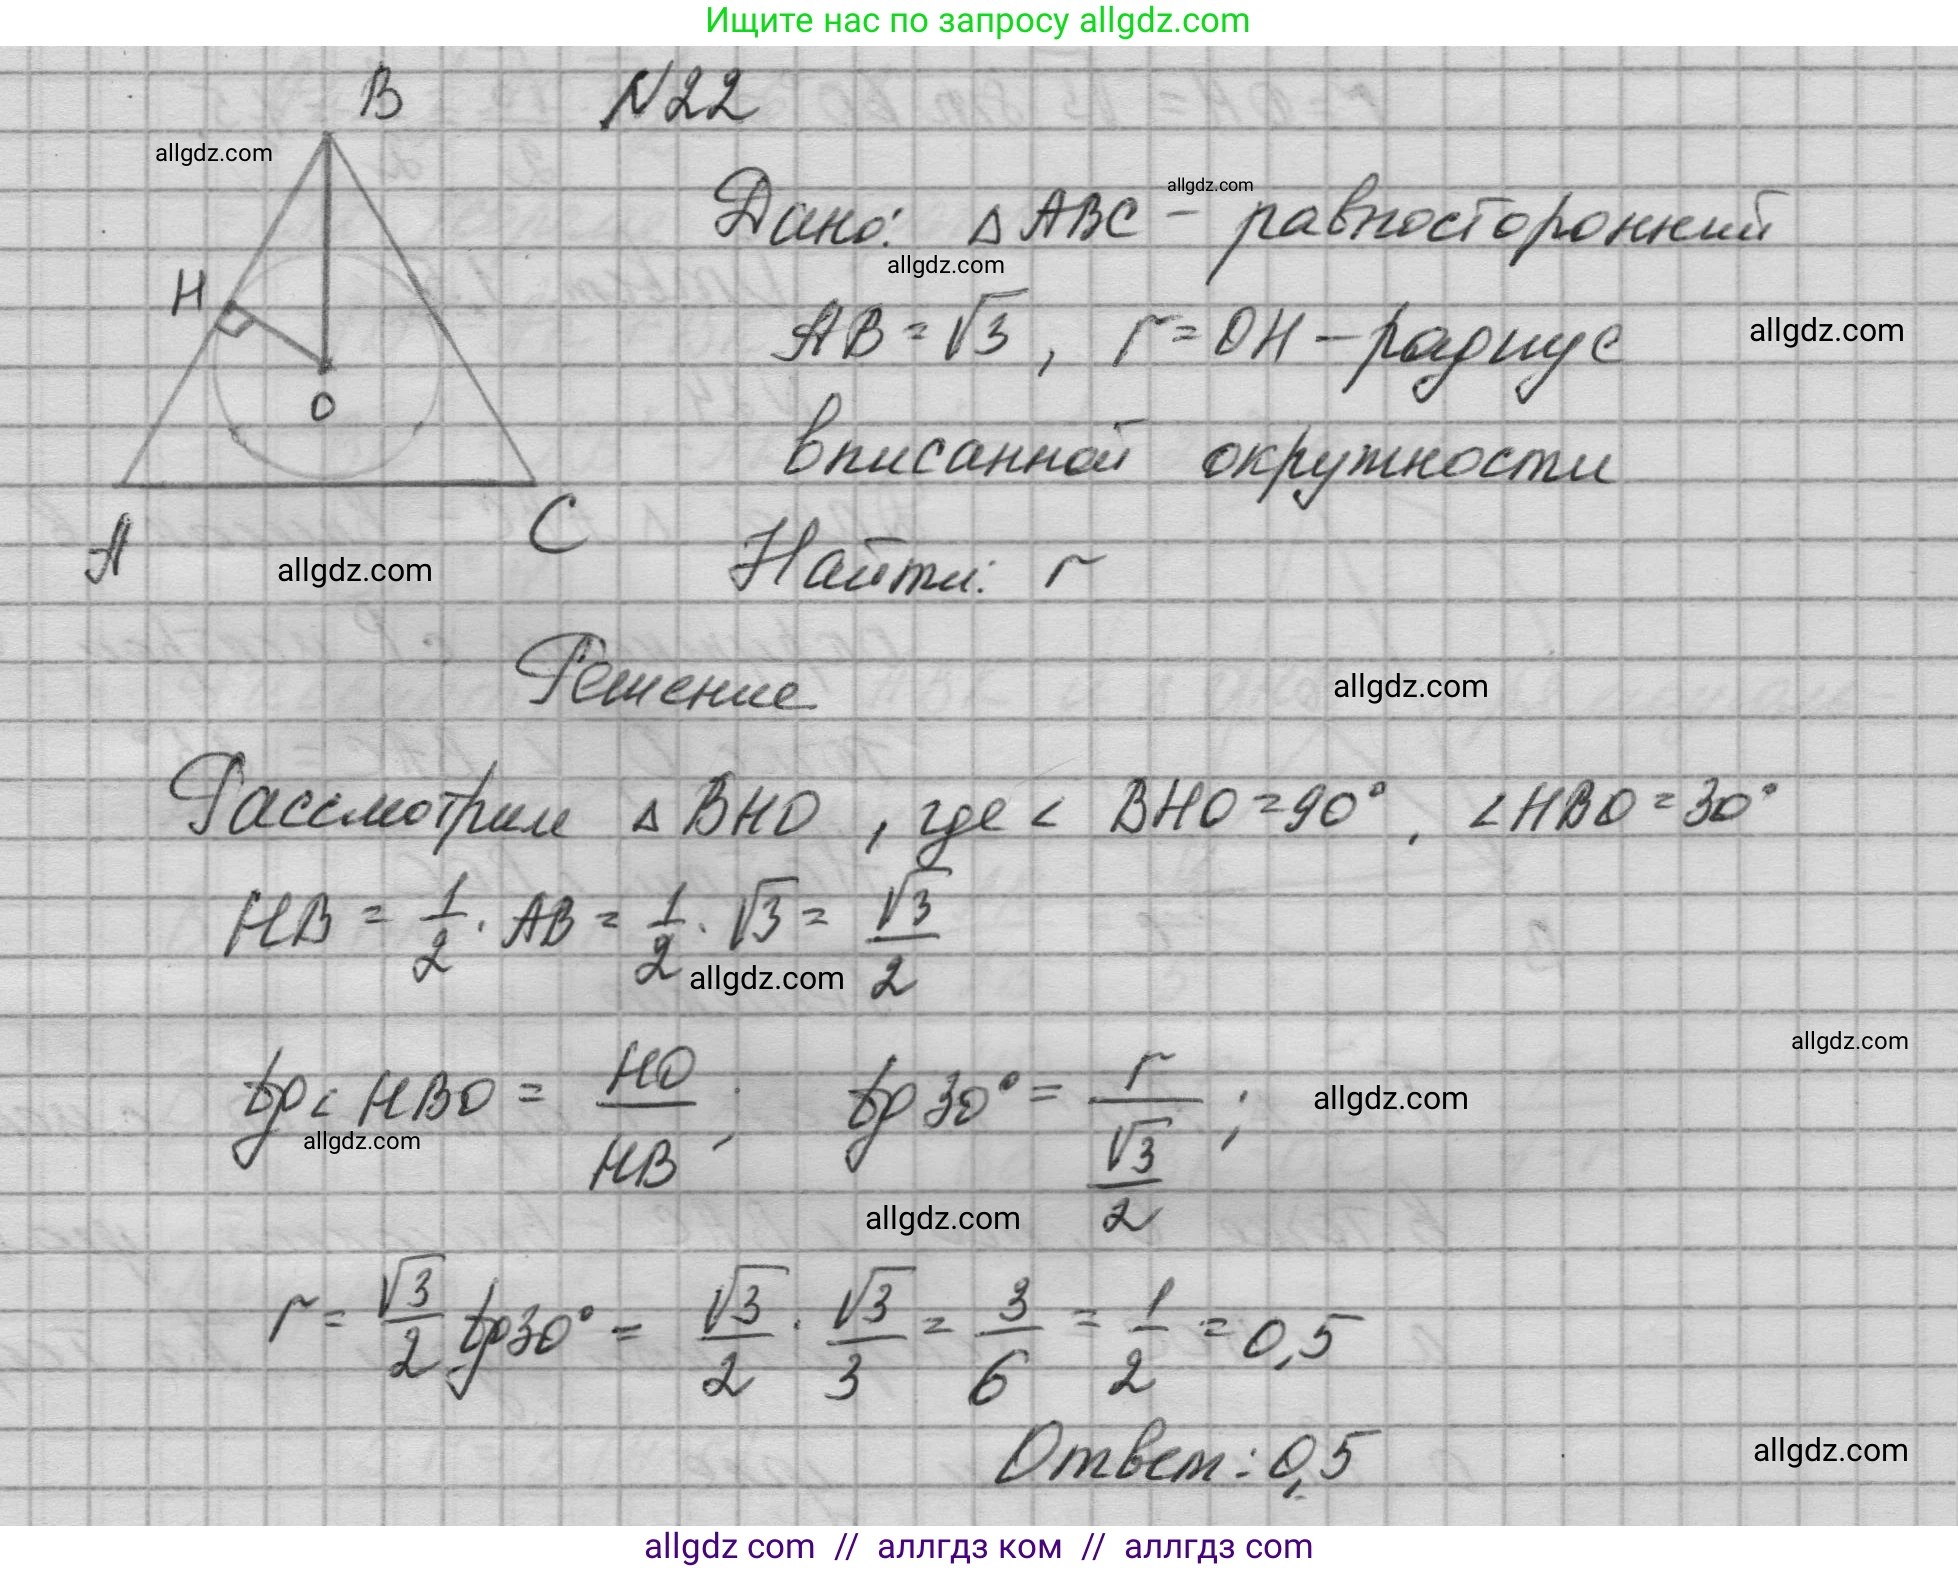 Ищите нас по запросу allgdz.com
B
N22
allgdz.com
Дано: △ABC - равносторонний
allgdz.com
allgdz.com
H
AB = √3, r = OH - радиус
allgdz.com
O
вписанной окружности
A
C
allgdz.com
Найти: r
Решение
allgdz.com
Рассмотрим △BHO, где ∠BHO = 90°, ∠HBO = 30°
HB = 1/2 · AB = 1/2 · √3 = √3/2
allgdz.com
allgdz.com
tg∠HBO = HO/HB; tg30° = r/(√3/2);
allgdz.com
allgdz.com
allgdz.com
r = √3/2 tg30° = √3/2 · √3/3 = 3/6 = 1/2 = 0,5
Ответ: 0,5
allgdz.com
allgdz com // аллгдз ком // аллгдз com